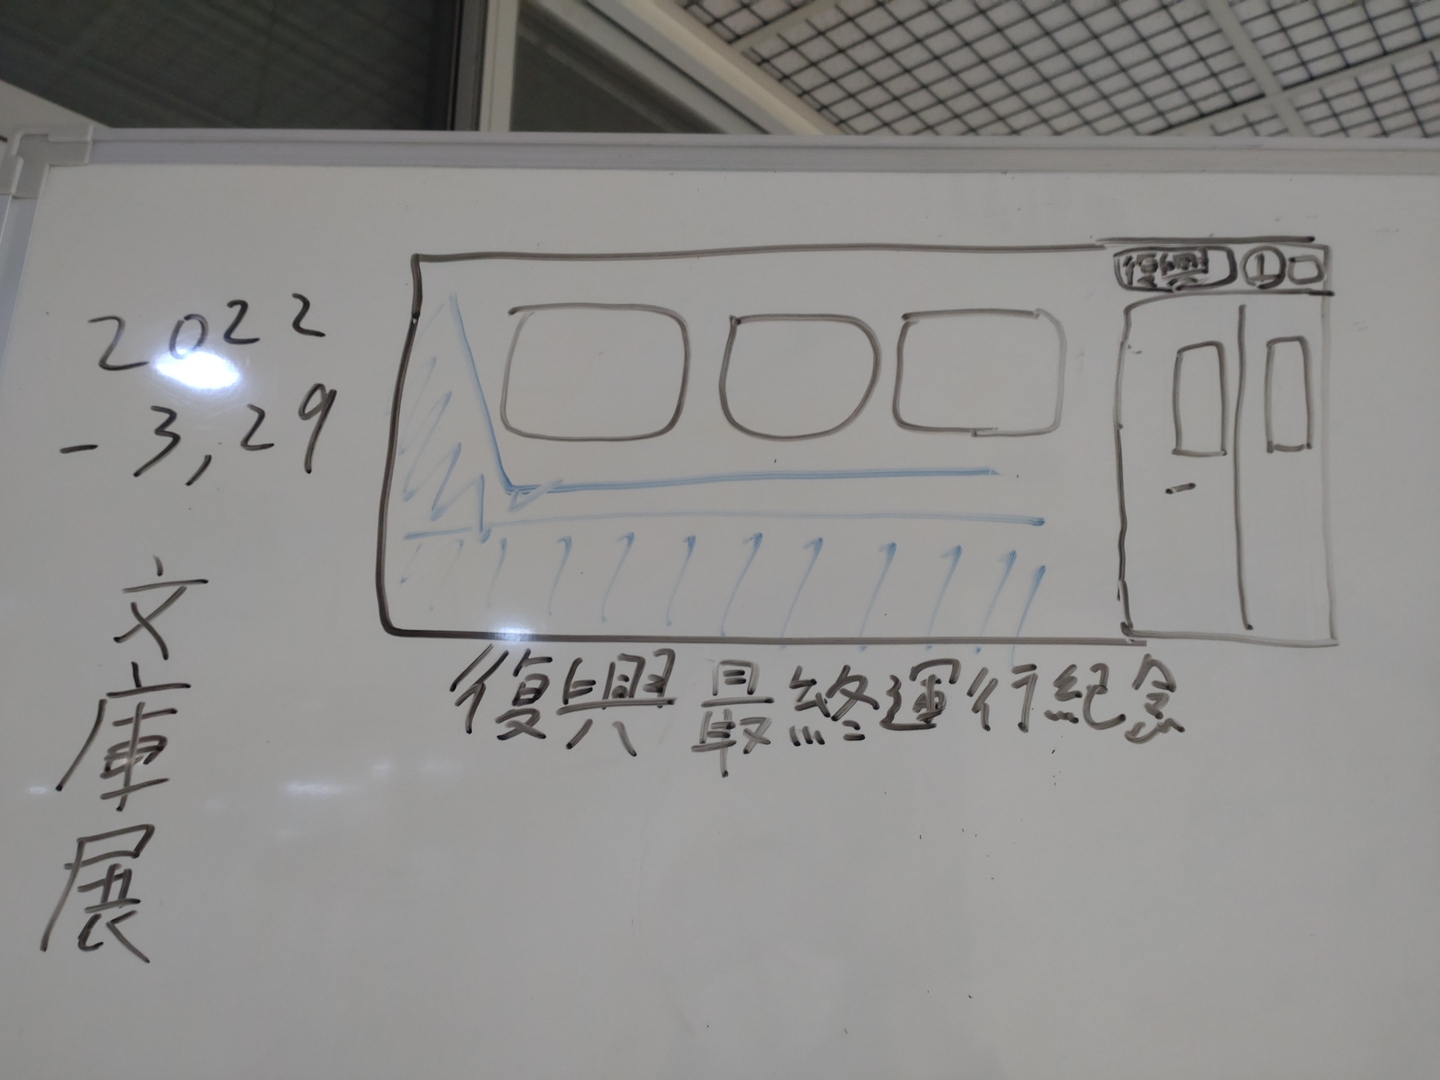 2022
-3,29
文庫展
復興 ①
復興最終運行紀念